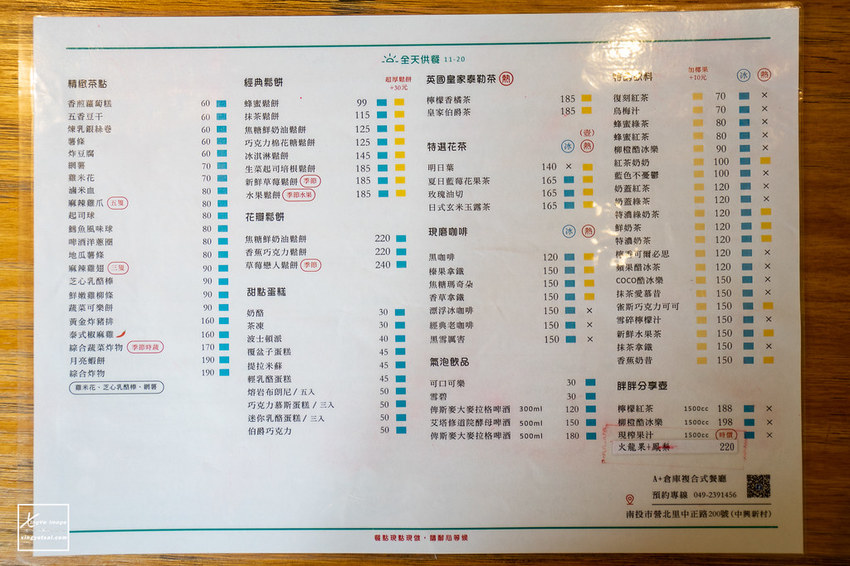 全天供餐 11-20
精緻茶點
香煎蘿蔔糕 60
五香豆干 60
煉乳銀絲卷 60
薯條 60
炸豆腐 60
網薯 70
雞米花 70
滷米血 80
麻辣雞爪 五隻 80
起司球 80
鱈魚風味球 80
啤酒洋蔥圈 80
地瓜薯條 80
麻辣雞翅 三隻 90
芝心乳酪棒 90
鮮嫩雞柳條 90
蔬菜可樂餅 90
黃金炸豬排 160
泰式椒麻雞 160
綜合蔬菜炸物 季節時蔬 170
月亮蝦餅 190
綜合炸物 190
雞米花、芝心乳酪棒、網薯
經典鬆餅
超厚鬆餅
+30元
蜂蜜鬆餅 99
抹茶鬆餅 115
焦糖鮮奶油鬆餅 125
巧克力棉花糖鬆餅 125
冰淇淋鬆餅 145
生菜起司培根鬆餅 185
新鮮草莓鬆餅 季節 185
水果鬆餅 季節水果 185
花瓣鬆餅
焦糖鮮奶油鬆餅 220
香蕉巧克力鬆餅 220
草莓戀人鬆餅 季節 240
甜點蛋糕
奶酪 30
茶凍 30
波士頓派 40
覆盆子蛋糕 45
提拉米蘇 45
輕乳酪蛋糕 45
熔岩布朗尼/五入 50
巧克力慕斯蛋糕/三入 50
迷你乳酪蛋糕/三入 50
伯爵巧克力 50
英國皇家泰勒茶 熱
檸檬香橘茶 185
皇家伯爵茶 185
(壺)
特選花茶 冰 熱
明日葉 140 ×
夏日藍莓花果茶 165
玫瑰油切 165
日式玄米玉露茶 165
現磨咖啡 冰 熱
黑咖啡 120
榛果拿鐵 150
焦糖瑪奇朵 150
香草拿鐵 150
漂浮冰咖啡 150 ×
經典老咖啡 150 ×
黑雪厲害 150 ×
氣泡飲品
可口可樂 30
雪碧 30
俾斯麥大麥拉格啤酒 300ml 120
艾塔修道院酵母啤酒 500ml 150
俾斯麥大麥拉格啤酒 500ml 180
飲料
加椰果
+10元
冰 熱
復刻紅茶 70 ×
烏梅汁 70 ×
蜂蜜綠茶 80 ×
蜂蜜紅茶 80 ×
柳橙酷冰樂 90 ×
紅茶奶奶 100
藍色不憂鬱 100 ×
奶蓋紅茶 120 ×
奶蓋綠茶 120 ×
特濃綠奶茶 120
鮮奶茶 120
特濃奶茶 120
可爾必思 120 ×
蘋果酷冰茶 120 ×
COCO酷冰樂 150 ×
抹茶愛慕昔 150 ×
雀斯巧克力可可 150
雪碎檸檬汁 150 ×
新鮮水果茶 150
抹茶拿鐵 150 ×
香蕉奶昔 150
胖胖分享壺
檸檬紅茶 1500cc 188 ×
柳橙酷冰樂 1500cc 198 ×
現榨果汁 1500cc 特價 ×
火龍果+鳳梨 220
A+倉庫複合式餐廳
預約專線 049-2391456
南投市營北里中正路200號(中興新村)